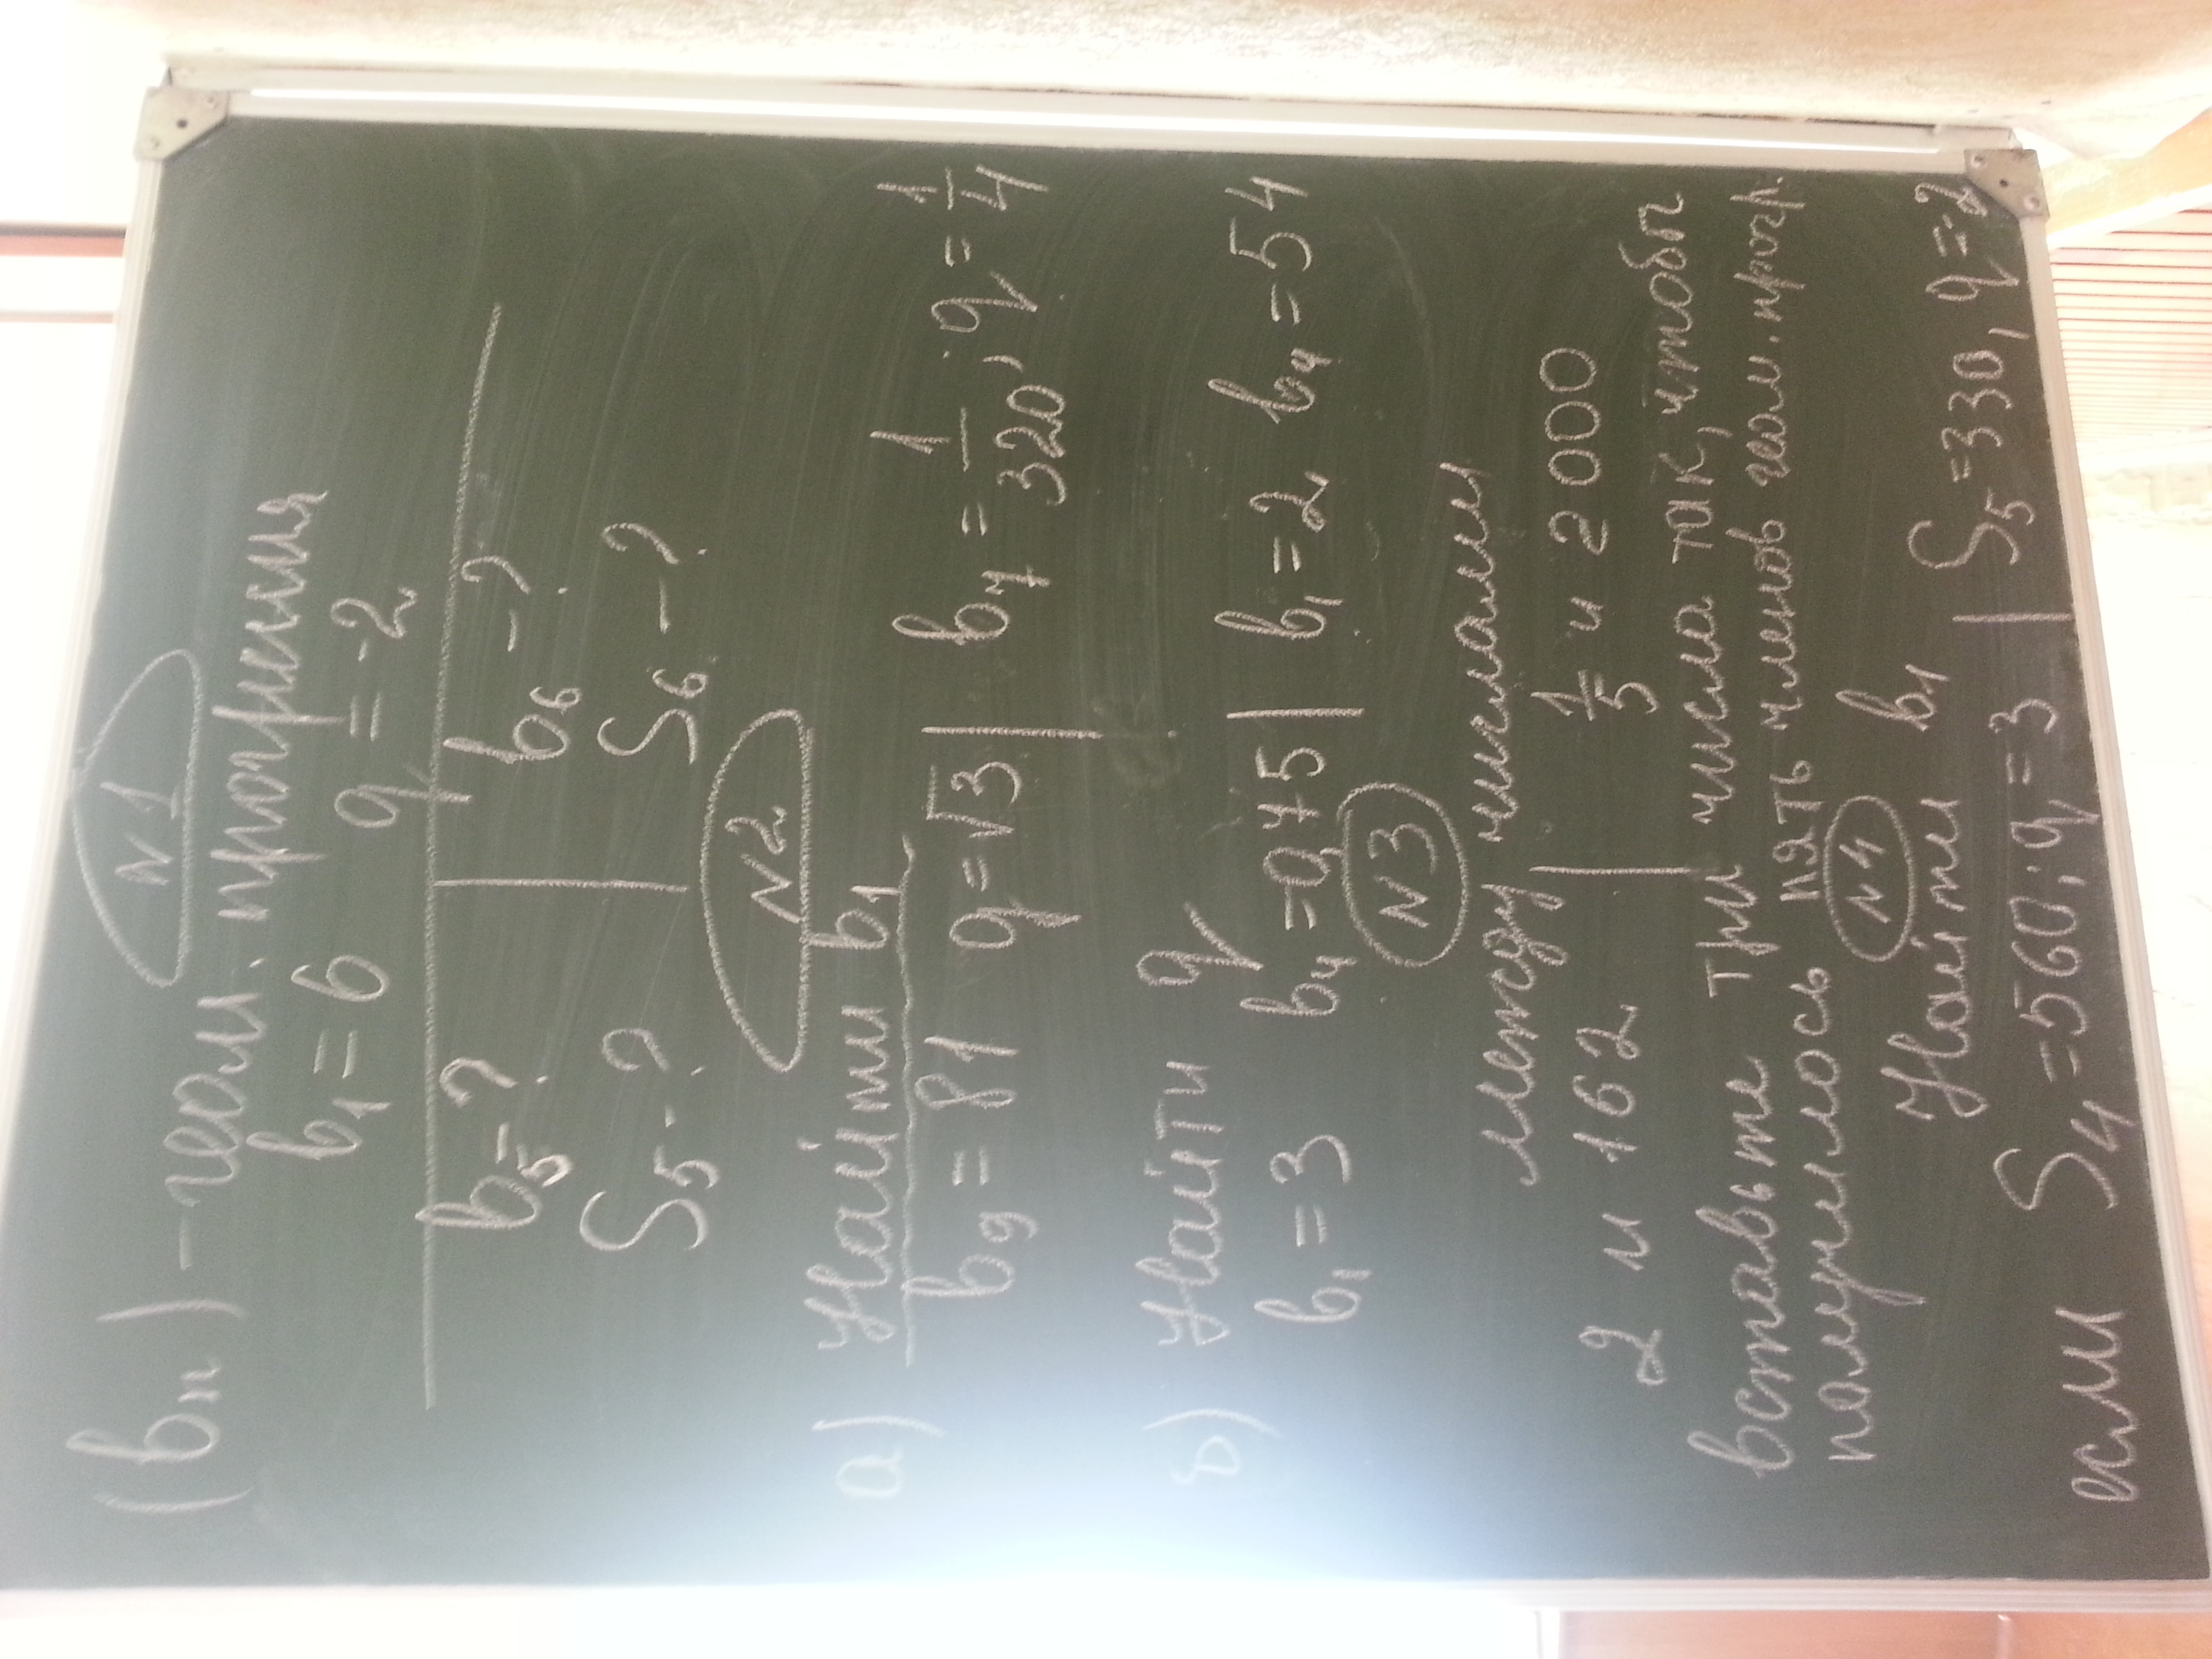 N1
(bn) - геом. прогрессия
b1 = 6 q = -2
b5 - ? b6 - ?
S5 - ? S6 - ?
N2
а) Найти b1
b9 = 81 q = √3 | b7 = 1/320, q = 1/4
б) Найти q
b1 = 3 b4 = 0,375 | b1 = 2 b4 = 54
N3
между числами
2 и 162 | 1/5 и 2000
вставьте три числа так, чтобы
получилось пять членов геом. прогр.
N4
Найти b1
если S4 = 560; q = 3 | S5 = 330, q = -2